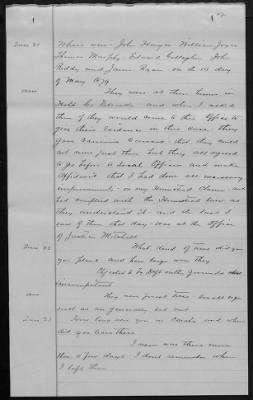 Ques 31 Where were John Hayes William Joyce
Thomas Murphy Edward Gallagher John
Ruddy and James Ryan on the 14 day
of May 1879
Ans They were at their homes in
Holt Co Nebraska and when I asked
them if they would come to this Office to
give their evidence in this case they
gave various excuses that they could
not come just then but they all agreed
to go before a local Officer and make
Affidavit that I had done all necessary
improvements on my Homestead Claim and
had complied with the Homestead law as
they understand it and the last I
saw of them that day was at the Office
of Justice Mitchell
Ques 32 What kind of trees did you
you plant and how large were they
Objected to by Deft on the grounds
incompetent
Ans They were forest trees small size
such as are generally set out
Ques 33 How long were you in Omaha and when
did you leave there
I was there more
than a few days I dont remember when
I left there